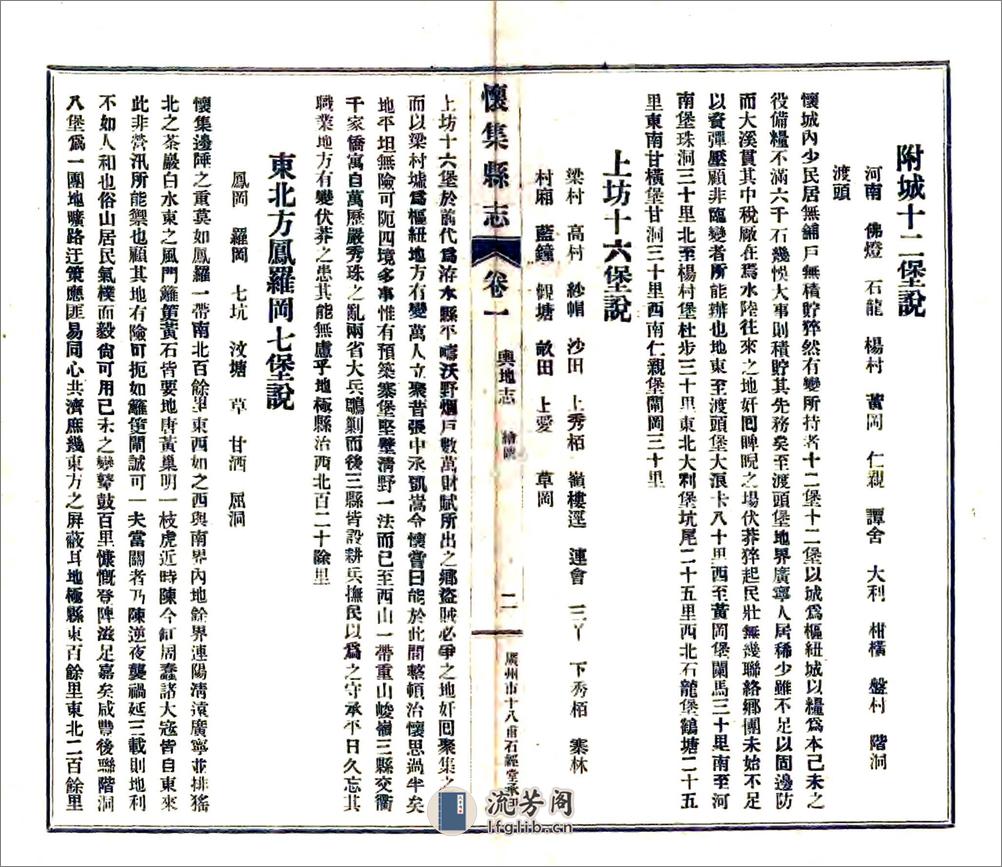 附城十二堡說
河南　佛燈　石龍　楊村　黃岡　仁親　譚舍　大利　柑橫　盤村　階洞
渡頭
懷城內少民居無舖戶無積貯猝然有變所持者十二堡十二堡以城爲樞紐城以糧爲本己未之
役備糧不滿六千石幾悞大事則積貯其先務矣至渡頭堡地界廣寧人居稀少雖不足以固邊防
而大溪貫其中稅廠在焉水陸往來之地奸囘睥睨之場伏莽猝起民壯無幾聯絡鄉團未始不足
以資彈壓顧非臨變者所能辦也地東至渡頭堡大浪卡八十里西至黃岡堡闌馬三十里南至河
南堡珠洞三十里北至楊村堡杜步三十里東北大利堡坑尾二十五里西北石龍堡鶴塘二十五
里東南甘橫堡甘洞三十里西南仁親堡閘岡三十里
上坊十六堡說
梁村　高村　紗帽　沙田　上秀栢　嶺樓逕　連會　三丫　下秀栢　寨林
村廂　藍鐘　觀塘　畝田　上愛　草岡
懷集縣志
卷一
輿地志　繪說
二
廣州市十八甫石經堂承印
上坊十六堡於前代爲洊水縣平疇沃野烟戶數萬財賦所出之鄉盜賊必爭之地奸囘聚集之
而以梁村墟爲樞紐地方有變萬人立聚昔張中丞凱嵩令懷嘗曰能於此間整頓治懷思過半矣
地平坦無險可阨四境多事惟有預築寨堡堅壁清野一法而已至西山一帶重山峻嶺三縣交衢
千家僑寓自萬歷嚴秀珠之亂兩省大兵鵰剿而後三縣皆設耕兵撫民以爲之守承平日久忘其
職業地方有變伏莽之患其能無慮乎地極縣治西北百二十餘里
東北方鳳羅岡七堡說
鳳岡　羅岡　七坑　汶塘　草　甘洒　屈洞
懷集邊陲之重莫如鳳羅一帶南北百餘里東西如之西與南界內地餘界連陽清遠廣寧並排猺
北之茶巖白水東之風門籬篢黃石皆要地唐黃巢明一枝虎近時陳今缸周蠢諸大寇皆自東來
此非營汛所能禦也顧其地有險可扼如籬篢閘誠可一夫當關者乃陳逆夜襲禍延三載則地利
不如人和也俗山居民氣樸而毅尙可用己未之變鼙鼓百里慷慨登陴滋足嘉矣咸豐後聯階洞
八堡爲一團地曠路迂策應匪易同心共濟庶幾東方之屏蔽耳地極縣東百餘里東北二百餘里
流芳阁
lfglib.cn